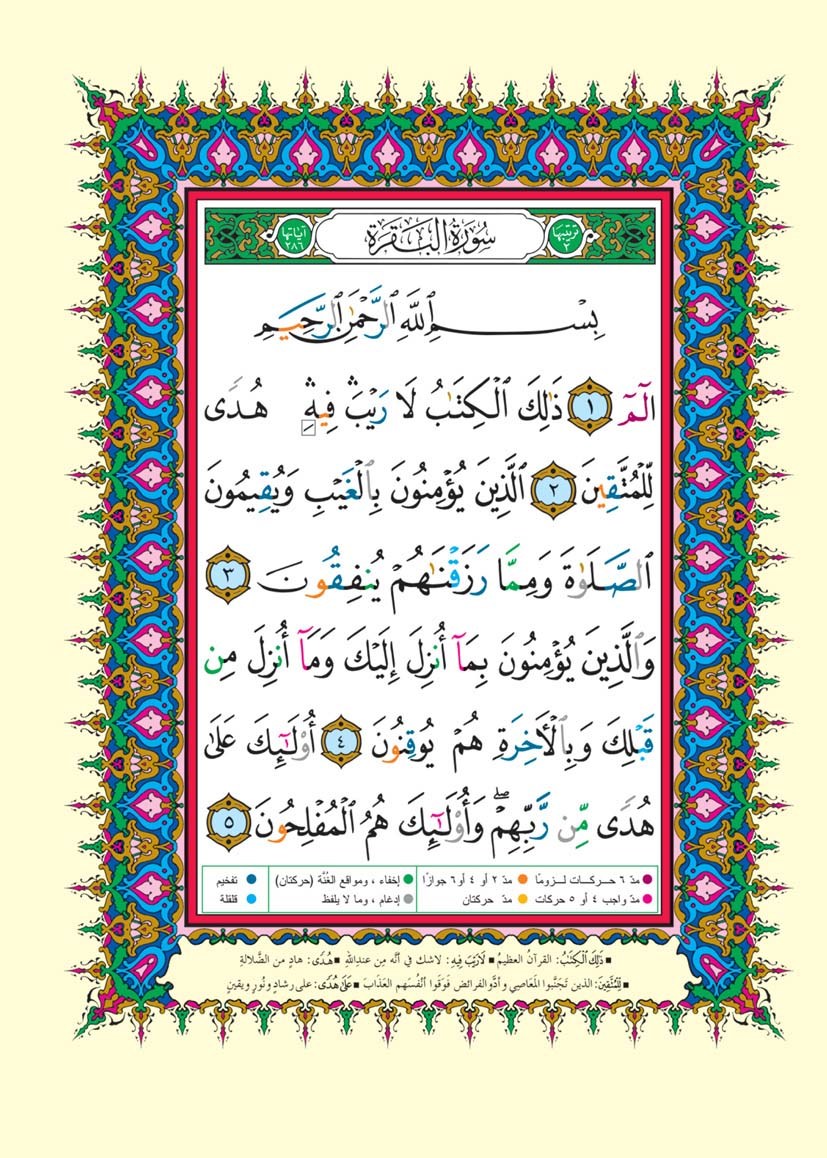 ترتيبها ٢
سُورَةُ البَقَرَةِ
آياتها ٢٨٦
بِسْمِ ٱللَّهِ ٱلرَّحْمَٰنِ ٱلرَّحِيمِ
الٓمٓ ١ ذَٰلِكَ ٱلْكِتَٰبُ لَا رَيْبَ ۛ فِيهِ ۛ هُدًى
لِّلْمُتَّقِينَ ٢ ٱلَّذِينَ يُؤْمِنُونَ بِٱلْغَيْبِ وَيُقِيمُونَ
ٱلصَّلَوٰةَ وَمِمَّا رَزَقْنَٰهُمْ يُنفِقُونَ ٣
وَٱلَّذِينَ يُؤْمِنُونَ بِمَآ أُنزِلَ إِلَيْكَ وَمَآ أُنزِلَ مِن
قَبْلِكَ وَبِٱلْأَخِرَةِ هُمْ يُوقِنُونَ ٤ أُو۟لَٰٓئِكَ عَلَىٰ
هُدًى مِّن رَّبِّهِمْ ۖ وَأُو۟لَٰٓئِكَ هُمُ ٱلْمُفْلِحُونَ ٥
مدّ ٦ حركات لزومًا مدّ ٢ أو ٤ أو ٦ جوازًا إخفاء ، ومواقع الغُنَّة (حركتان) تفخيم
مدّ واجب ٤ أو ٥ حركات مدّ حركتان إدغام ، وما لا يلفظ قلقلة
■ ذَٰلِكَ ٱلْكِتَٰبُ: القرآن العظيم ■ لَا رَيْبَ فِيهِ: لاشك في أنَّه مِن عندِاللهِ ■ هُدًى: هادٍ من الضَّلالةِ
■ لِّلْمُتَّقِينَ: الذين تَجَنَّبوا المَعَاصِي وأَدَّوالفرائض فَوَقَوا أنْفُسَهم العَذَابَ ■ عَلَىٰ هُدًى: على رشادٍ ونُورٍ ويقينٍ